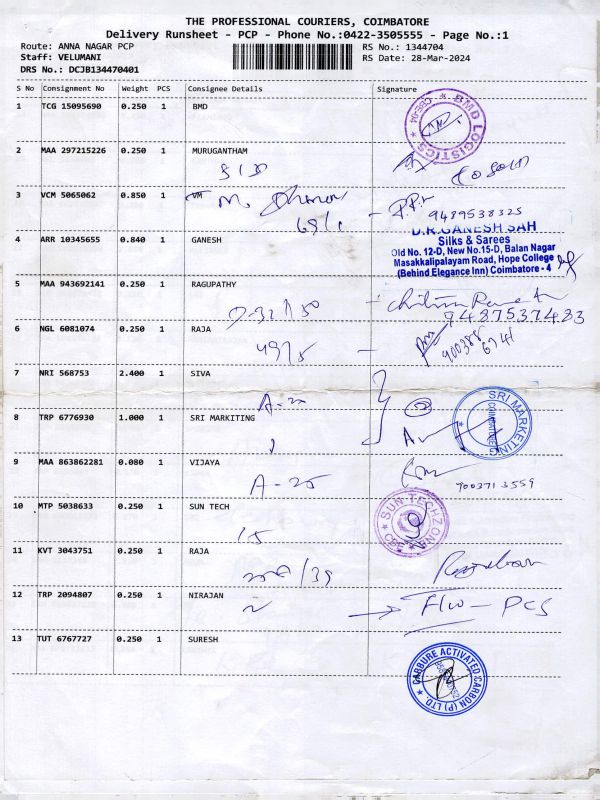 THE PROFESSIONAL COURIERS, COIMBATORE
Delivery Runsheet - PCP - Phone No.:0422-3505555 - Page No.:1
Route: ANNA NAGAR PCP RS No.: 1344704
Staff: VELUMANI RS Date: 28-Mar-2024
DRS No.: DCJB134470401
S No Consignment No Weight PCS Consignee Details Signature
1 TCG 15095690 0.250 1 BMD
BMD LOGISTICS
* CBE-04 *
2 MAA 297215226 0.250 1 MURUGANTHAM
3 VCM 5065062 0.850 1 VM
M.
9489538325
4 ARR 10345655 0.840 1 GANESH
D.R.GANESH SAH
Silks & Sarees
Old No. 12-D, New No.15-D, Balan Nagar
Masakkalipalayam Road, Hope College
(Behind Elegance Inn) Coimbatore - 4
5 MAA 943692141 0.250 1 RAGUPATHY
9487537483
6 NGL 6081074 0.250 1 RAJA
7 NRI 568753 2.400 1 SIVA
8 TRP 6776930 1.000 1 SRI MARKITING
SRI MARKETING
COIMBATORE
9 MAA 863862281 0.080 1 VIJAYA
A-25
9003713559
10 MTP 5038633 0.250 1 SUN TECH
15
SUN TECHZONE
CBE
11 KVT 3043751 0.250 1 RAJA
12 TRP 2094807 0.250 1 NIRAJAN
PCS
13 TUT 6767727 0.250 1 SURESH
CARBURE ACTIVATED CARBON (P) LTD.